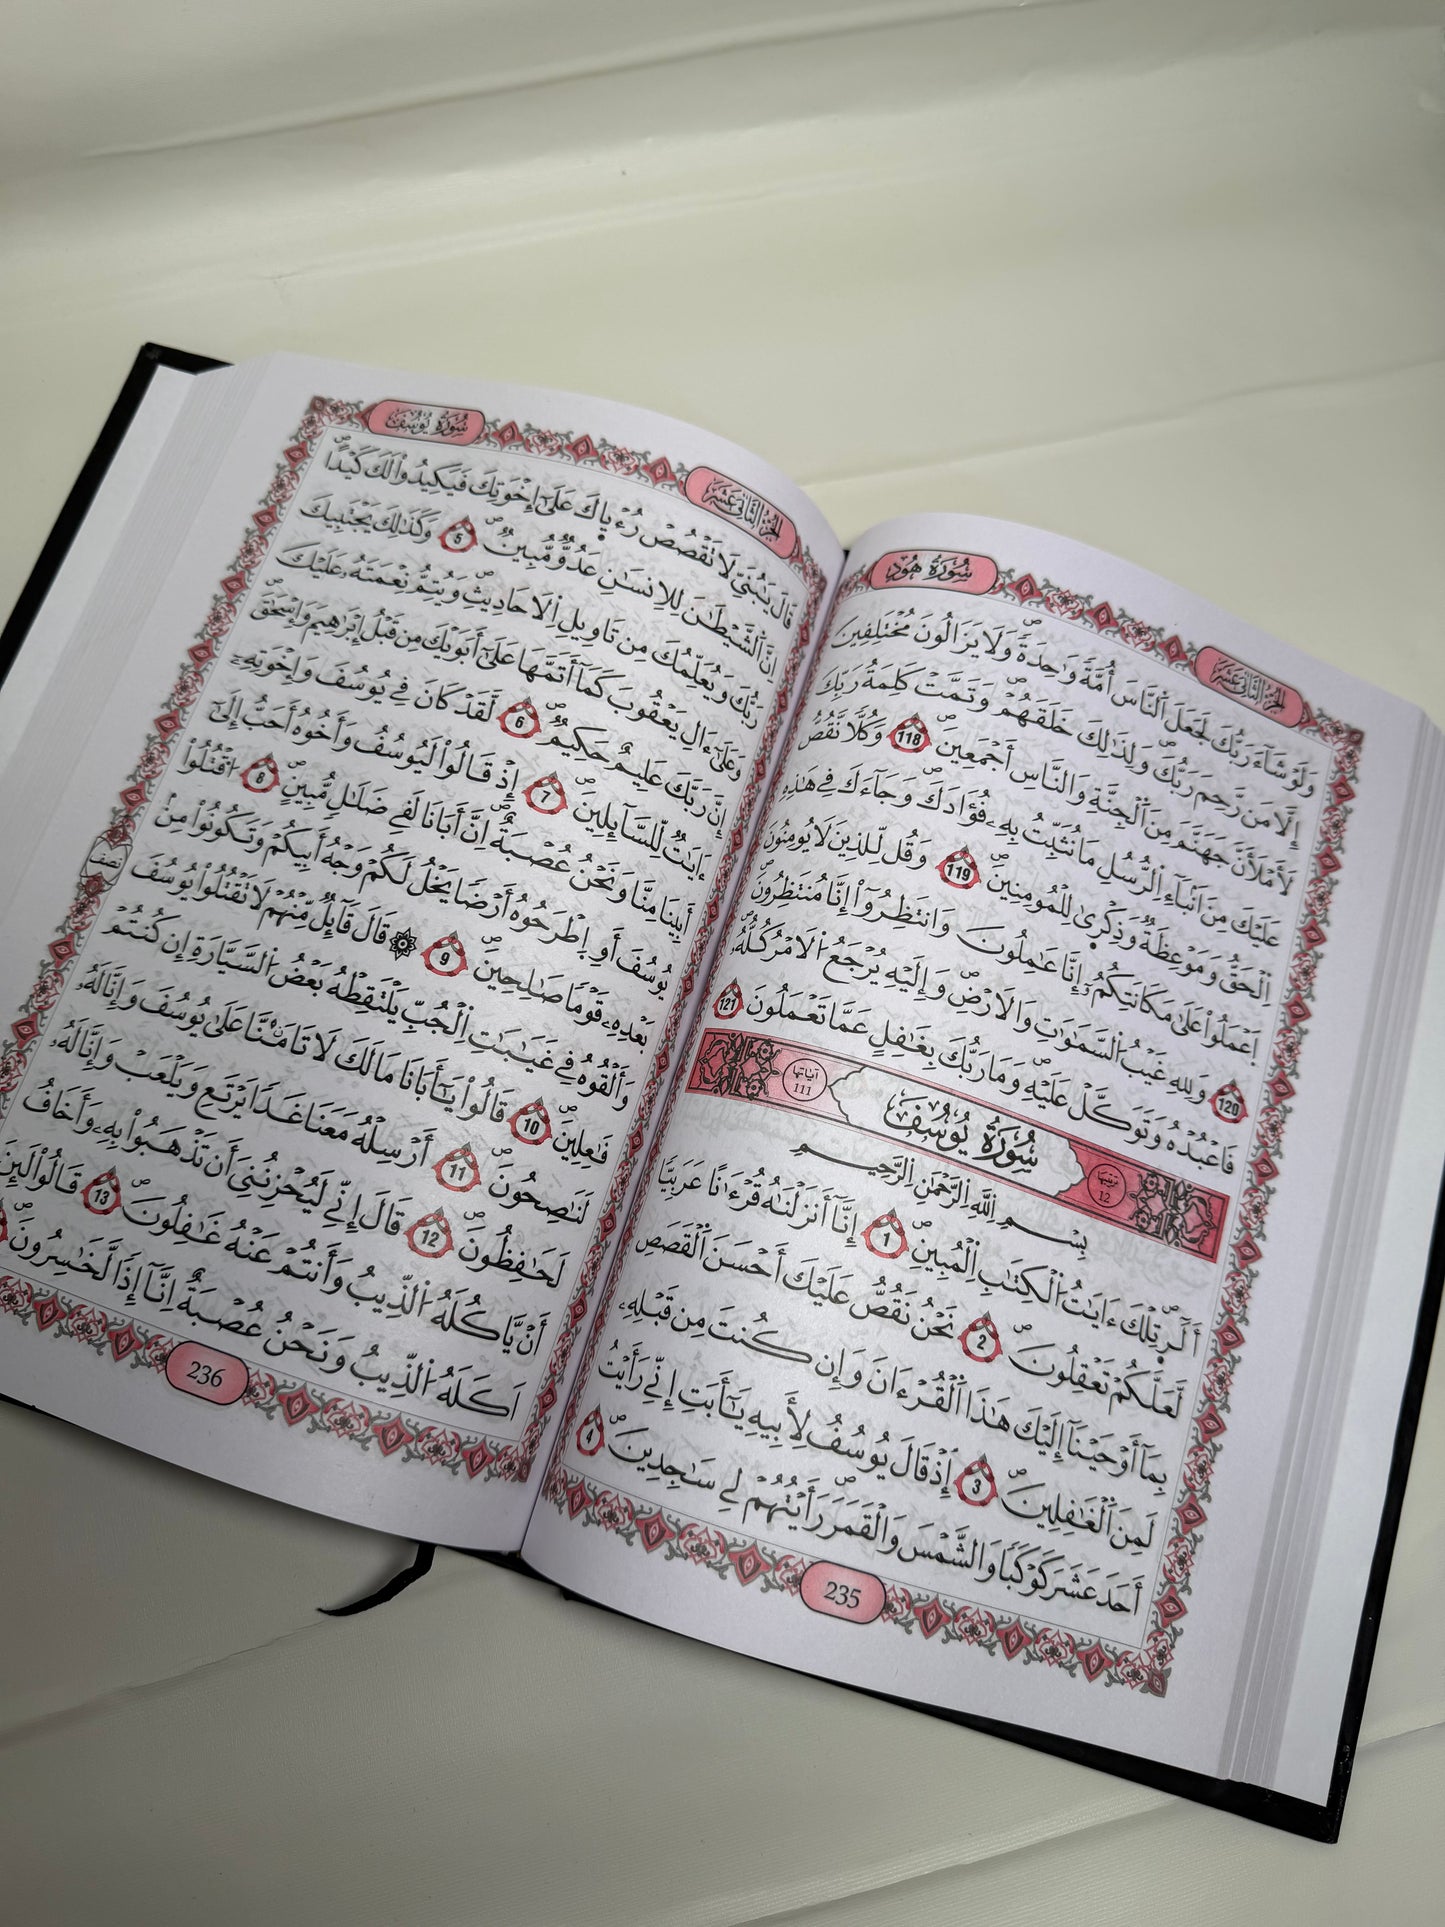 سُورَةُ هُودٍ
الجزء الثاني عشر
وَلَوْ شَآءَ رَبُّكَ لَجَعَلَ اَ۬لنَّاسَ أُمَّةٗ وَٰحِدَةٗۖ وَلَا يَزَالُونَ مُخْتَلِفِينَ
إِلَّا مَن رَّحِمَ رَبُّكَۖ وَلِذَٰلِكَ خَلَقَهُمْۖ وَتَمَّتْ كَلِمَةُ رَبِّكَ
لَأَمْلَأَنَّ جَهَنَّمَ مِنَ اَ۬لْجِنَّةِ وَالنَّاسِ أَجْمَعِينَۖ 118 وَكُلّٗا نَّقُصُّ
عَلَيْكَ مِنَ اَنۢبَآءِ اِ۬لرُّسُلِ مَا نُثَبِّتُ بِهِۦ فُؤَادَكَۖ وَجَآءَكَ فِے هَٰذِهِ
اِ۬لْحَقُّ وَمَوْعِظَةٞ وَذِكْر۪ىٰ لِلْمُومِنِينَۖ 119 وَقُل لِّلذِينَ لَا يُومِنُونَ
اَ۪عْمَلُواْ عَلَىٰ مَكَانَتِكُمُۥٓ إِنَّا عَٰمِلُونَ وَانتَظِرُوٓاْ إِنَّا مُنتَظِرُونَۖ
120 وَلِلهِ غَيْبُ اُ۬لسَّمَٰوَٰتِ وَالَارْضِۖ وَإِلَيْهِ يُرْجَعُ اُ۬لَامْرُ كُلُّهُۥ
فَاعْبُدْهُ وَتَوَكَّلْ عَلَيْهِۖ وَمَا رَبُّكَ بِغَٰفِلٍ عَمَّا تَعْمَلُونَ 121
ترتيبها 12
سُورَةُ يُوسُفَ
آياتها 111
بِسْمِ اِ۬للَّهِ اِ۬لرَّحْمَٰنِ اِ۬لرَّحِيمِ
أَلَٓر۪ۖ تِلْكَ ءَايَٰتُ اُ۬لْكِتَٰبِ اِ۬لْمُبِينِۖ 1 إِنَّآ أَنزَلْنَٰهُ قُرْءَٰناً عَرَبِيّٗا
لَّعَلَّكُمْ تَعْقِلُونَۖ 2 نَحْنُ نَقُصُّ عَلَيْكَ أَحْسَنَ اَ۬لْقَصَصِ
بِمَآ أَوْحَيْنَآ إِلَيْكَ هَٰذَا اَ۬لْقُرْءَانَ وَإِن كُنتَ مِن قَبْلِهِۦ
لَمِنَ اَ۬لْغَٰفِلِينَۖ 3 إِذْ قَالَ يُوسُفُ لِأَبِيهِ يَٰٓأَبَتِ إِنِّے رَأَيْتُ
أَحَدَ عَشَرَ كَوْكَباٗ وَالشَّمْسَ وَالْقَمَرَ رَأَيْتُهُمْ لِے سَٰجِدِينَۖ 4
235
سُورَةُ يُوسُفَ
الجزء الثاني عشر
قَالَ يَٰبُنَيِّ لَا تَقْصُصْ رُءْي۪اكَ عَلَىٰٓ إِخْوَتِكَ فَيَكِيدُواْ لَكَ كَيْداًۖ
اِنَّ اَ۬لشَّيْطَٰنَ لِلِانسَٰنِ عَدُوّٞ مُّبِينٞۖ 5 وَكَذَٰلِكَ يَجْتَبِيكَ
رَبُّكَ وَيُعَلِّمُكَ مِن تَاوِيلِ اِ۬لَاحَادِيثِۖ وَيُتِمُّ نِعْمَتَهُۥ عَلَيْكَ
وَعَلَىٰٓ ءَالِ يَعْقُوبَ كَمَآ أَتَمَّهَا عَلَىٰٓ أَبَوَيْكَ مِن قَبْلُ إِبْرَٰهِيمَ وَإِسْحَٰقَۖ
إِنَّ رَبَّكَ عَلِيمٌ حَكِيمٞۖ 6 لَّقَدْ كَانَ فِے يُوسُفَ وَإِخْوَتِهِۦٓ
ءَايَٰتٞ لِّلسَّآئِلِينَۖ 7 إِذْ قَالُواْ لَيُوسُفُ وَأَخُوهُ أَحَبُّ إِلَىٰٓ
أَبِينَا مِنَّا وَنَحْنُ عُصْبَةٌۖ اِنَّ أَبَانَا لَفِے ضَلَٰلٖ مُّبِينٍۖ 8 اُ۟قْتُلُواْ
يُوسُفَ أَوِ اِ۪طْرَحُوهُ أَرْضاٗ يَخْلُ لَكُمْ وَجْهُ أَبِيكُمْ وَتَكُونُواْ مِنۢ
بَعْدِهِۦ قَوْماٗ صَٰلِحِينَۖ 9 ۞ قَالَ قَآئِلٞ مِّنْهُمْ لَا تَقْتُلُواْ يُوسُفَ
نصف
وَأَلْقُوهُ فِے غَيَٰبَٰتِ اِ۬لْجُبِّ يَلْتَقِطْهُ بَعْضُ اُ۬لسَّيَّارَةِ إِن كُنتُمْ
فَٰعِلِينَۖ 10 قَالُواْ يَٰٓأَبَانَا مَا لَكَ لَا تَامَ۬نَّا عَلَىٰ يُوسُفَ وَإِنَّا لَهُۥ
لَنَٰصِحُونَۖ 11 أَرْسِلْهُ مَعَنَا غَداٗ يَرْتَعِ وَيَلْعَبْ وَإِنَّا لَهُۥ
لَحَٰفِظُونَۖ 12 قَالَ إِنِّے لَيُحْزِنُنِيَ أَن تَذْهَبُواْ بِهِۦ وَأَخَافُ
أَنْ يَّاكُلَهُ اُ۬لذِّيبُ وَأَنتُمْ عَنْهُ غَٰفِلُونَۖ 13 قَالُواْ لَئِنَ
اَكَلَهُ اُ۬لذِّيبُ وَنَحْنُ عُصْبَةٌ اِنَّآ إِذاٗ لَّخَٰسِرُونَۖ
236